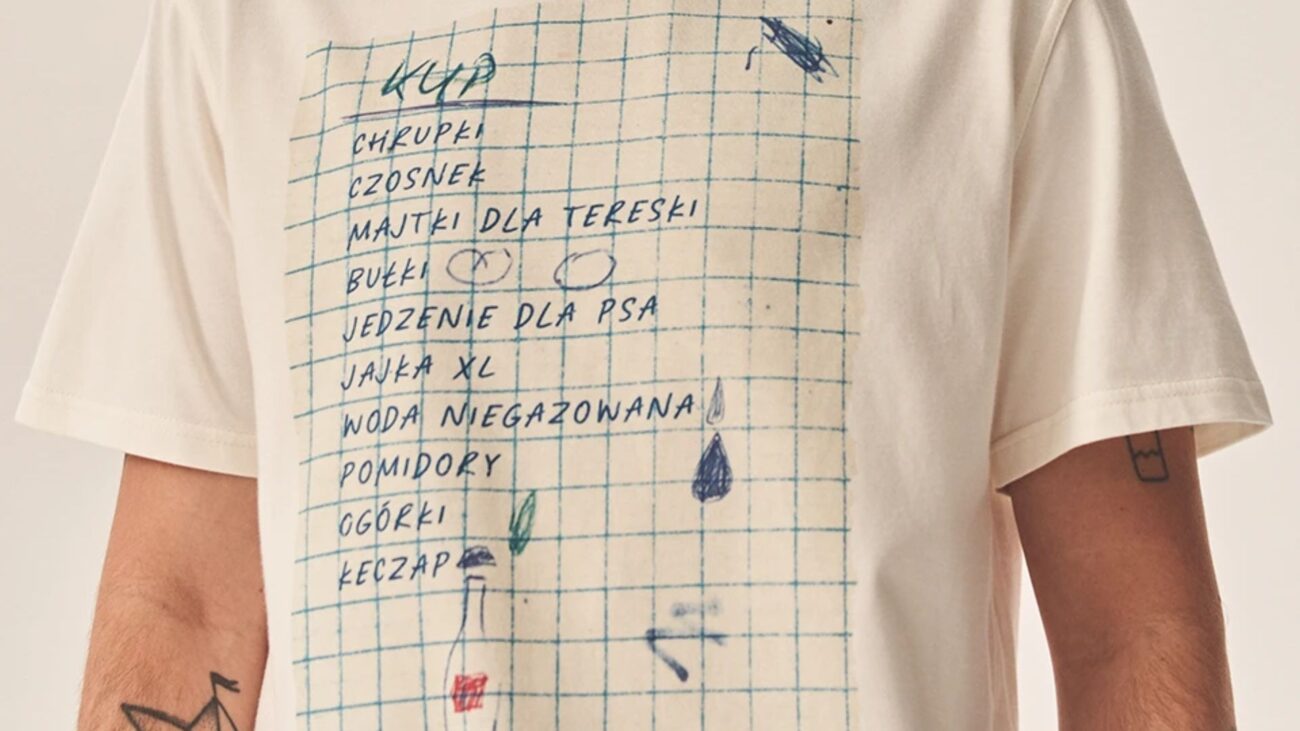 KUP
CHRUPKI
CZOSNEK
MAJTKI DLA TERESKI
BUŁKI
JEDZENIE DLA PSA
JAJKA XL
WODA NIEGAZOWANA
POMIDORY
OGÓRKI
KECZAP